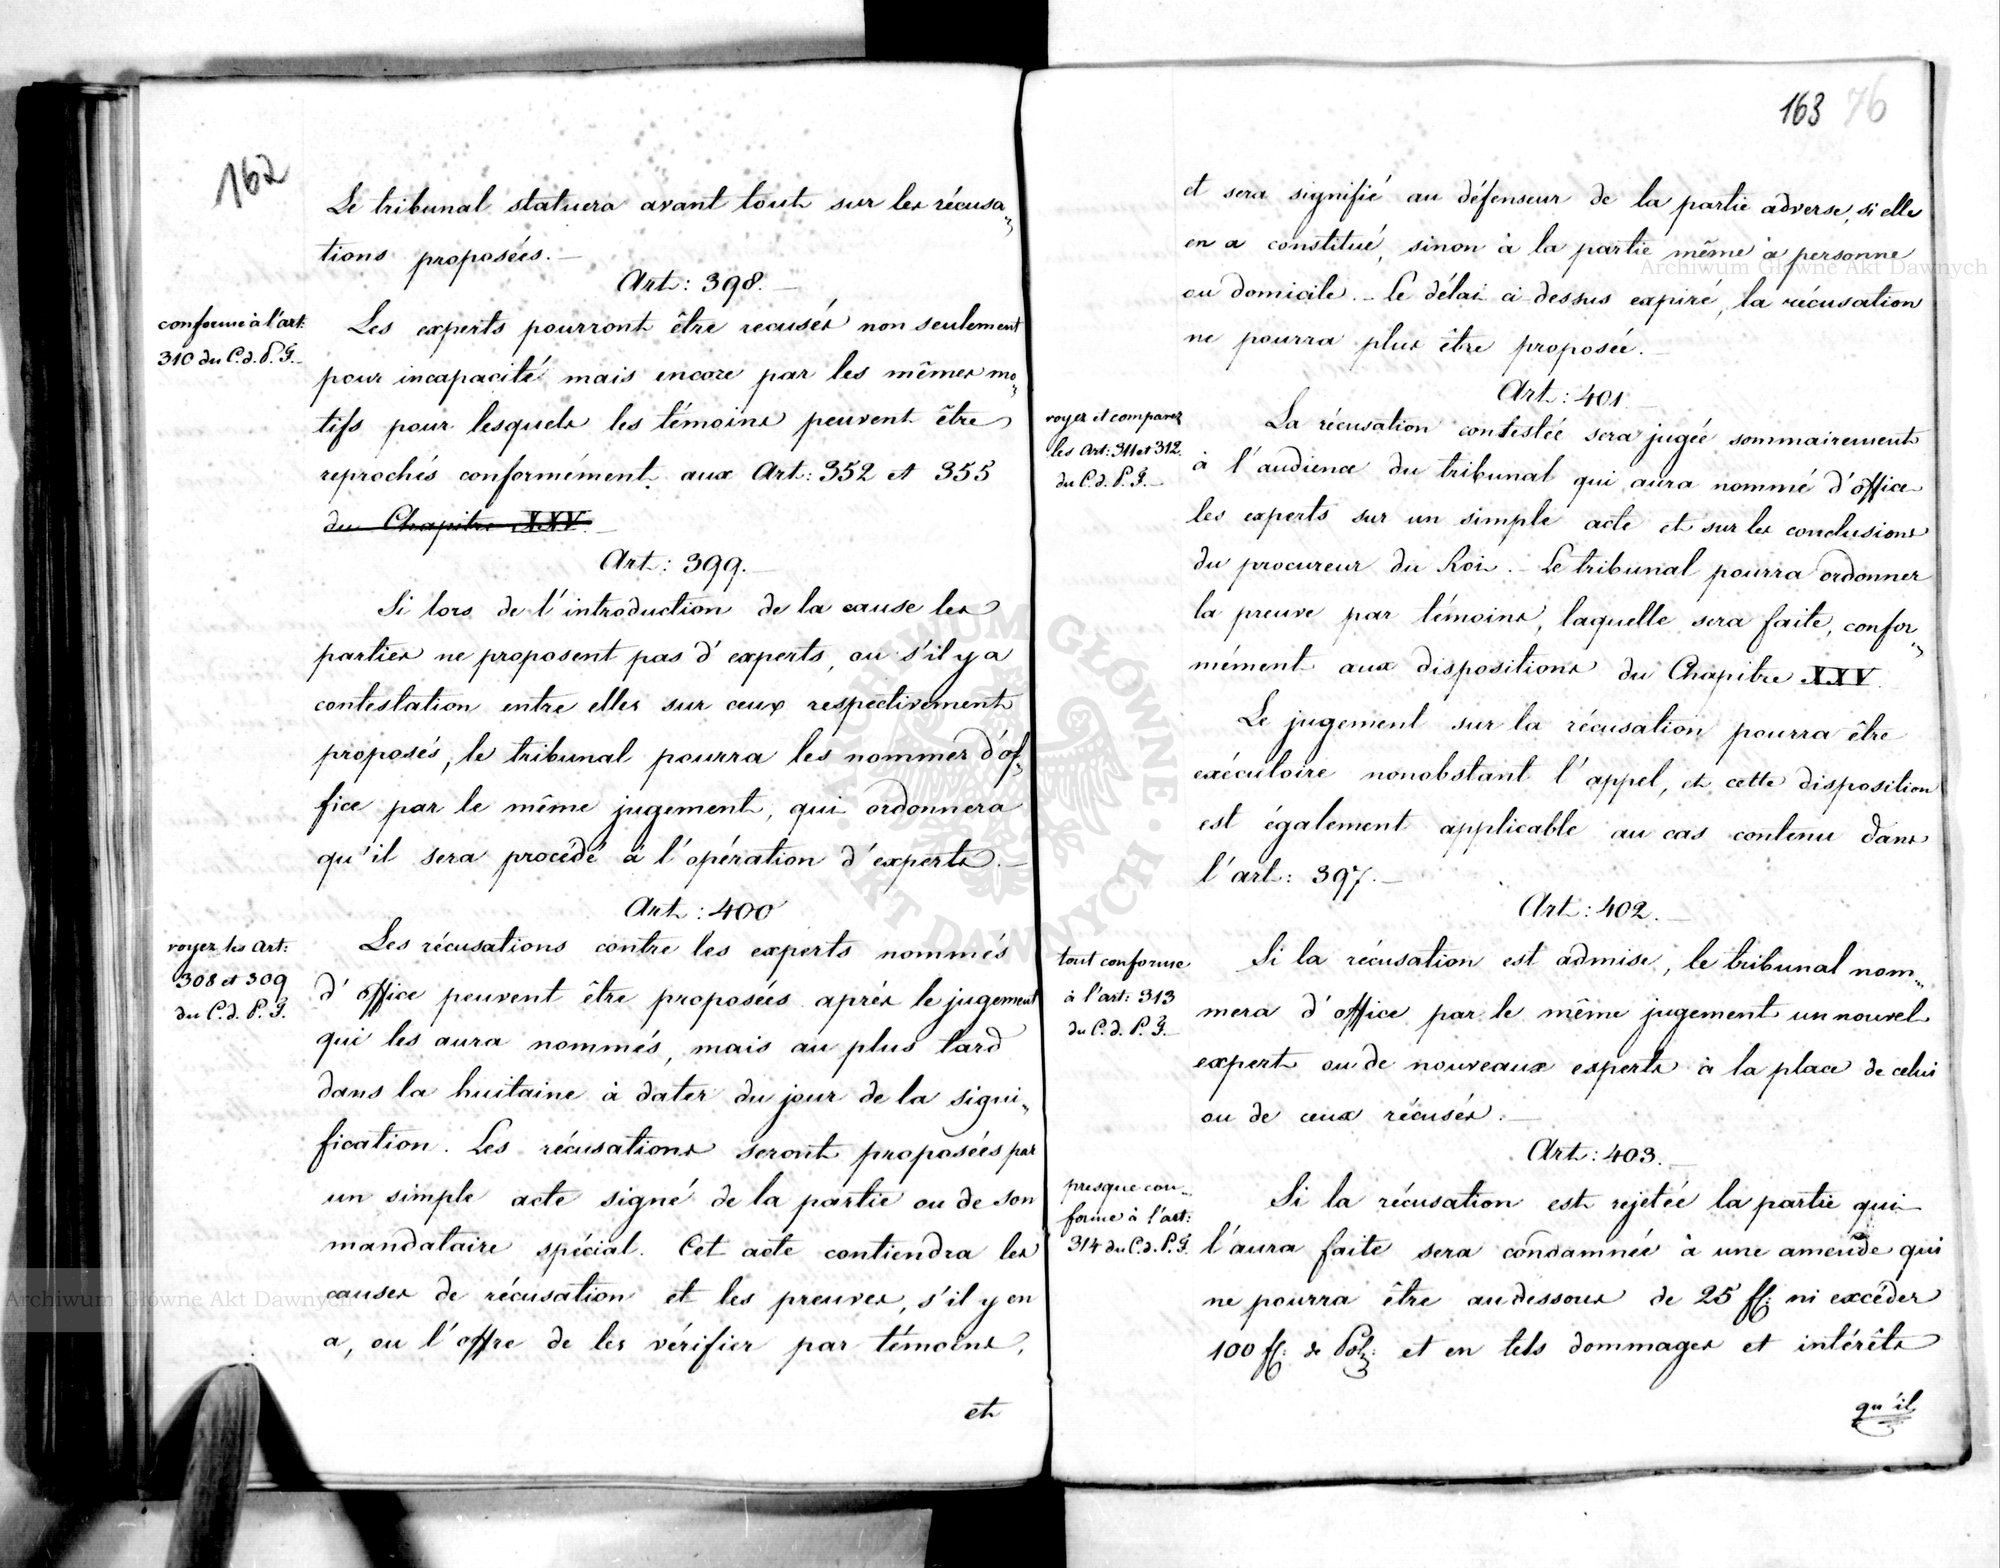 162
Le tribunal statuera avant tout sur les récusa„
tions proposées. —
Art: 398. —
conforme à l'art:
310 du C. d. P. F. —
Les experts pourront être recusés non seulement
pour incapacité mais encore par les mêmes mo„
tifs pour lesquels les témoins peuvent être
reprochés conformément aux Art: 352 et 355
du Chapitre XXV. —
Art: 399. —
Si lors de l'introduction de la cause les
parties ne proposent pas d'experts, ou s'il y a
contestation entre elles sur ceux respectivement
proposés, le tribunal pourra les nommer d'of„
fice par le même jugement, qui ordonnera
qu'il sera procédé à l'opération d'experts. —
Art: 400
voyez les Art:
308 et 309
du C. d. P. F.
Les récusations contre les experts nommés
d'office peuvent être proposées après le jugement
qui les aura nommés, mais au plus tard
dans la huitaine à dater du jour de la signi„
fication. Les récusations seront proposées par
un simple acte signé de la partie ou de son
mandataire spécial. Cet acte contiendra les
causes de récusation et les preuves, s'il y en
a, ou l'offre de les vérifier par témoins,
et
163 76
et sera signifié au défenseur de la partie adverse, si elle
en a constitué, sinon à la partie même à personne
ou domicile. — Le délai ci-dessus expiré, la récusation
ne pourra plus être proposée. —
Art: 401. —
voyez et comparez
les Art: 311 et 312.
du C. d. P. F. —
La récusation contestée sera jugée sommairement
à l'audience du tribunal qui aura nommé d'office
les experts sur un simple acte et sur les conclusions
du procureur du Roi. — Le tribunal pourra ordonner
la preuve par témoins, laquelle sera faite, confor„
mément aux dispositions du Chapitre XXV.
Le jugement sur la récusation pourra être
exécutoire nonobstant l'appel, et cette disposition
est également applicable au cas contenu dans
l'art: 397. —
Art: 402. —
tout conforme
à l'art: 313
du C. d. P. F. —
Si la récusation est admise, le tribunal nom„
mera d'office par le même jugement un nouvel
expert ou de nouveaux experts à la place de celui
ou de ceux récusés. —
Art: 403. —
presque con„
forme à l'art:
314 du C. d. P. F.
Si la récusation est rejetée la partie qui
l'aura faite sera condamnée à une amende qui
ne pourra être audessous de 25 ff: ni excéder
100 ff: de Pol: et en tels dommages et intérêts
qu'il
Archiwum Główne Akt Dawnych
Archiwum Główne Akt Dawnych
ARCHIWUM GŁÓWNE · AKT DAWNYCH ·